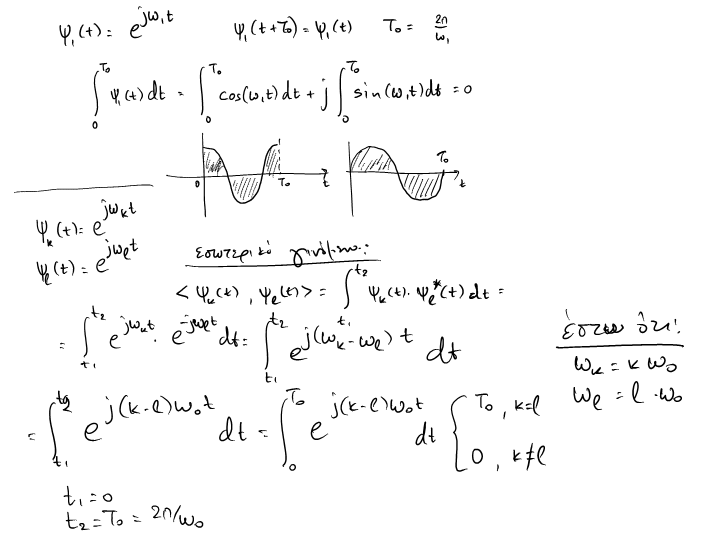 ψ₁(t) = e^{jω₁t}   ψ₁(t+T₀) = ψ₁(t)   T₀ = 2π/ω₁
∫₀^{T₀} ψ₁(t) dt = ∫₀^{T₀} cos(ω₁t) dt + j ∫₀^{T₀} sin(ω₁t) dt = 0
0 T₀ t T₀ t
ψₖ(t) = e^{jωₖt}
ψₗ(t) = e^{jωₗt}
εσωτερικό γινόμενο:
<ψₖ(t), ψₗ(t)> = ∫_{t₁}^{t₂} ψₖ(t)·ψₗ*(t) dt =
= ∫_{t₁}^{t₂} e^{jωₖt}·e^{-jωₗt} dt = ∫_{t₁}^{t₂} e^{j(ωₖ-ωₗ)t} dt
έστω ότι:
ωₖ = k ω₀
ωₗ = l·ω₀
= ∫_{t₁}^{t₂} e^{j(k-l)ω₀t} dt = ∫₀^{T₀} e^{j(k-l)ω₀t} dt { T₀, k=l
0, k≠l
t₁ = 0
t₂ = T₀ = 2π/ω₀